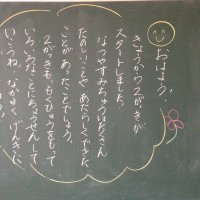 おはよう!
きょうから2がっきが
スタートしました。
なつやすみちゅうはたくさん
たのしいことや あたらしくできた
ことが あったことでしょう。
2がっきも、もくひょうをもって
いろいろなことにちょうせんして
いこうね。なかよく げんきに